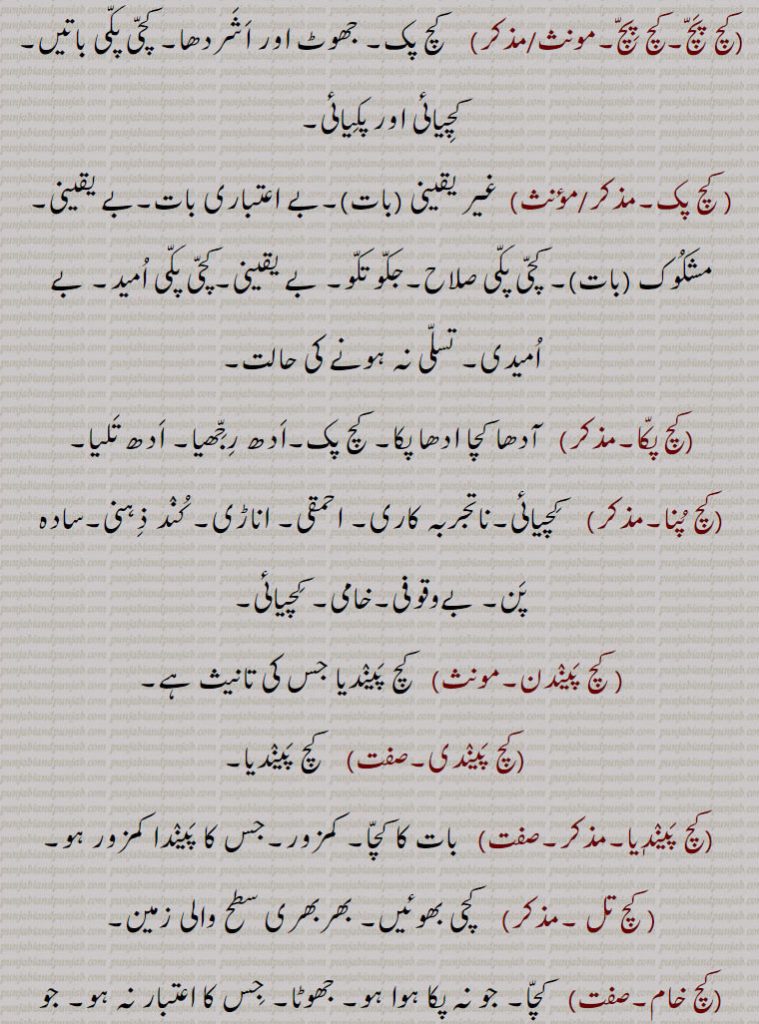 (کچ پَچّ۔ کچ پِچّ۔ مونث/مذکر) کچ پک۔ جھوٹ اور اَشَردھا۔ کچّی پکّی باتیں۔
کچِیائی اور پکیائی۔
(کچ پک۔ مذکر/مؤنث) غیر یقینی (بات)۔ بے اعتباری بات۔ بے یقینی۔
مشکُوک (بات)۔ کچّی پکّی صلاح۔ جکّو تکّو۔ بے یقینی۔ کچّی پکّی اُمید۔ بے
اُمیدی۔ تسلّی نہ ہونے کی حالت۔
(کچ پکّا۔ مذکر) آدھا کچا ادھا پکا۔ کچ پک۔ اَدھ رِجّھیا۔ اَدھ تَلیا۔
(کچ پُنا۔ مذکر) کچِیائی۔ ناتجربہ کاری۔ احمقی۔ اناڑی۔ کُند ذِہنی۔ سادہ
پَن۔ بے وقوفی۔ خامی۔ کچِیائی۔
(کچ پَینْدن۔ مونث) کچ پَینْدیا جس کی تانیث ہے۔
(کچ پَینْدی۔ صفت) کچ پَینْدیا۔
(کچ پَینْدِیا۔ مذکر۔ صفت) بات کا کچّا۔ کمزور۔ جس کا پَینْدا کمزور ہو۔
(کچ تل ۔ مذکر) کچی بھوئیں۔ بھربھری سطح والی زمین۔
(کچ خام۔ صفت) کچّا۔ جو نہ پکا ہوا ہو۔ جھوٹا۔ جِس کا اعتبار نہ ہو۔ جو